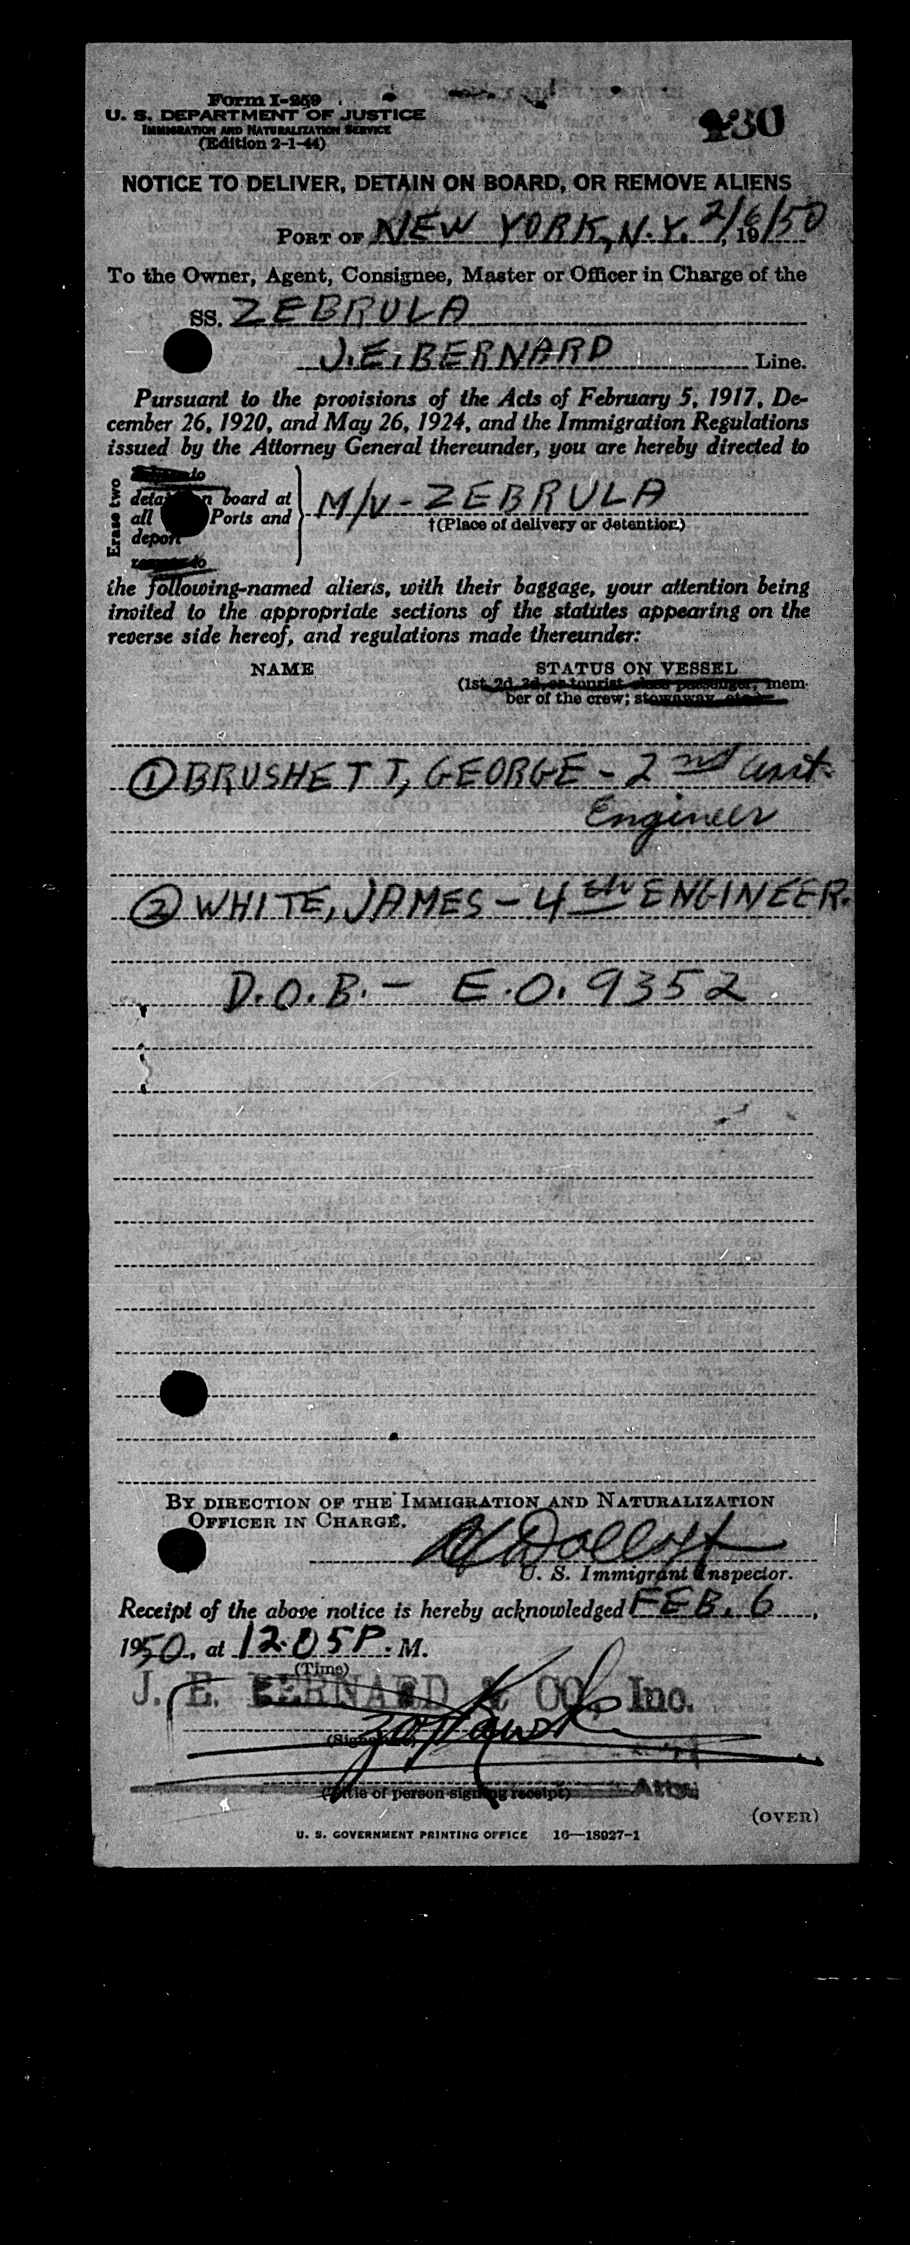 Form I-259
U. S. DEPARTMENT OF JUSTICE
IMMIGRATION AND NATURALIZATION SERVICE
(Edition 2-1-44)
NOTICE TO DELIVER, DETAIN ON BOARD, OR REMOVE ALIENS
PORT OF NEW YORK, N.Y. 2/6/50, 19
To the Owner, Agent, Consignee, Master or Officer in Charge of the
SS. ZEBRULA
J.E. BERNARD Line.
Pursuant to the provisions of the Acts of February 5, 1917, De-
cember 26, 1920, and May 26, 1924, and the Immigration Regulations
issued by the Attorney General thereunder, you are hereby directed to
Erase two
board at
all Ports and
deport
M/V - ZEBRULA
†(Place of delivery or detention.)
the following-named aliens, with their baggage, your attention being
invited to the appropriate sections of the statutes appearing on the
reverse side hereof, and regulations made thereunder:
NAME STATUS ON VESSEL
(1st, 2d, 3d, or tourist class passenger, mem-
ber of the crew; stowaway, etc.)
① BRUSHETT, GEORGE - 2nd asst.
Engineer
② WHITE, JAMES - 4th ENGINEER.
D.O.B. - E.O. 9352
BY DIRECTION OF THE IMMIGRATION AND NATURALIZATION
OFFICER IN CHARGE.
U. S. Immigrant Inspector.
Receipt of the above notice is hereby acknowledged FEB. 6,
1950, at 12.05 P. M.
(Time)
J. E. BERNARD & CO, Inc.
(Signature)
Atty.
(Title of person signing receipt)
(OVER)
U. S. GOVERNMENT PRINTING OFFICE 16—18927-1